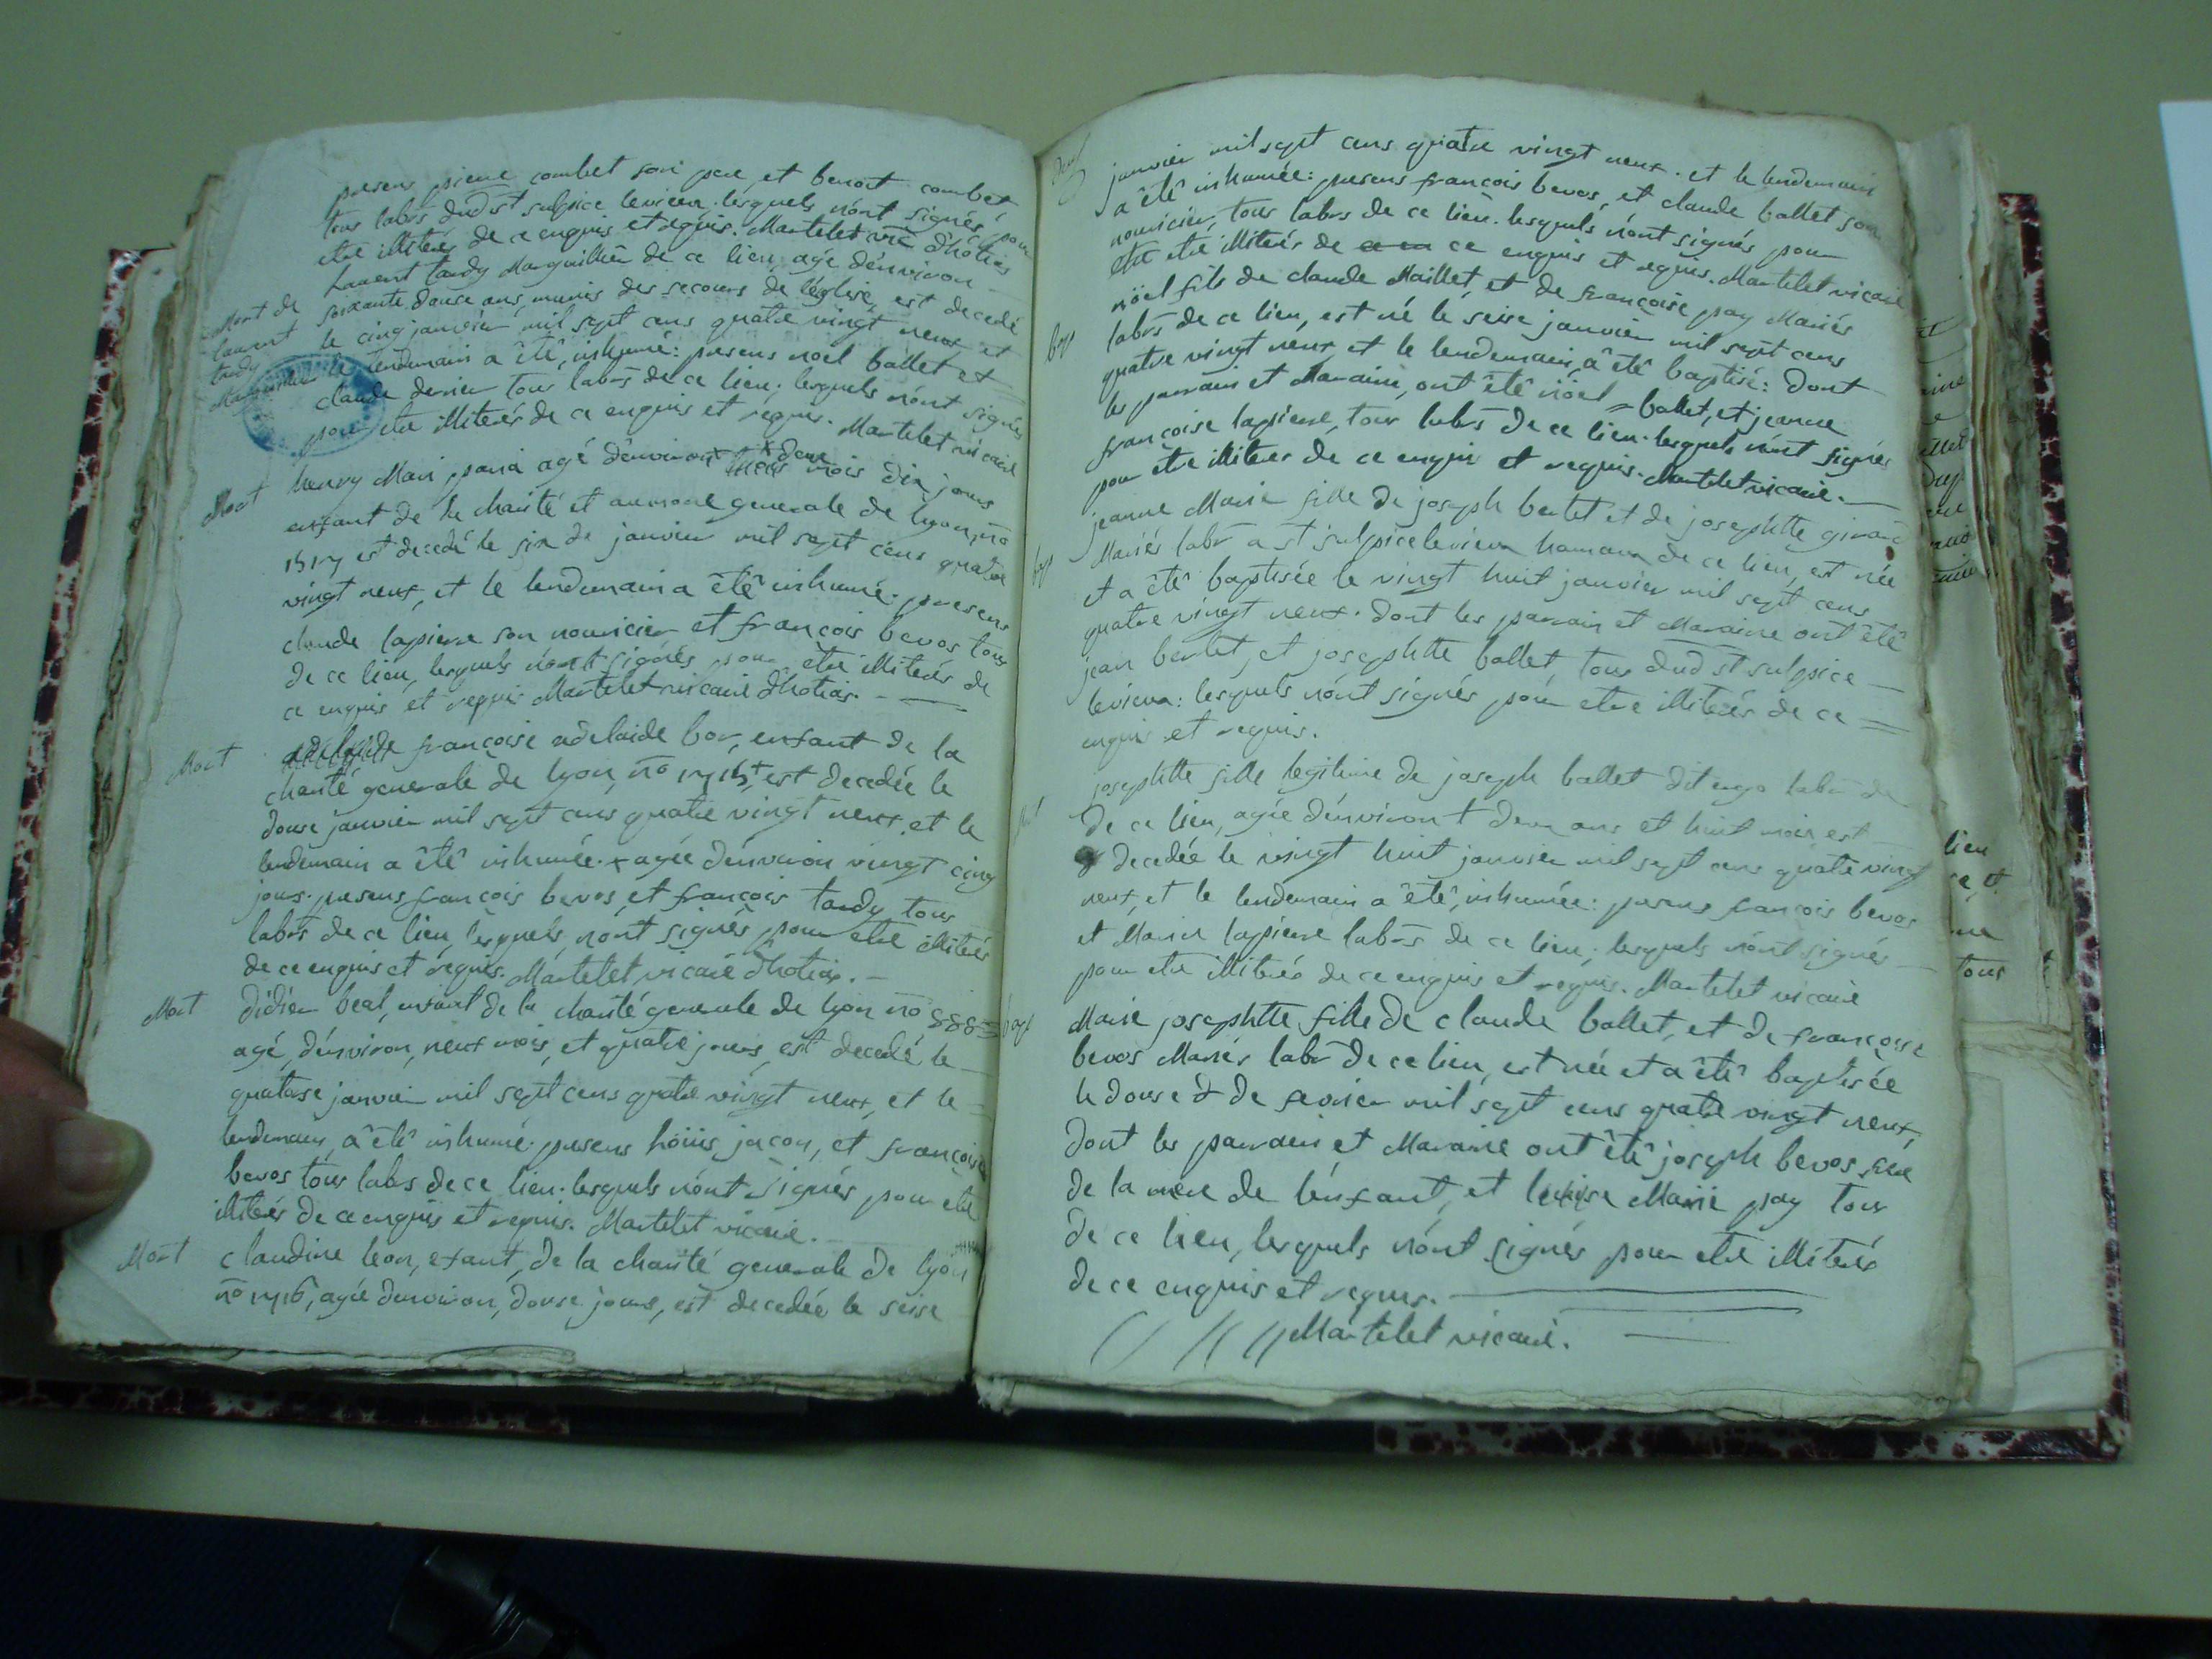 presens pierre combet son pere et benoit combet
tous labrs dud st sulpice levieux. lesquels nónt signés pour
etre illiterés de ce enquis et requis. Martelet vic d'hotias
Mort de laurent tardy Marguillier
laurent tardy Marguillier de ce lieu, agé dénviron
soixante douse ans, munis des secours de léglise, est decedé
le cinq janvier mil sept cens quatre vingt neuf et
le lendemain a êtê inhumé: presens noel ballet et
claude dernier tous labrs de ce lieu; lesquels nónt signés
pour etre illiterés de ce enquis et requis. Martelet vicaire
Mort
henry Mari agé dénviron deux mois dix jours
enfant de la charité et aumone generale de lyon, no
est decedé le six de janvier mil sept cens quatre
vingt neuf, et le lendemain a êtê inhumé. presens
claude lapierre son nouricier et françois bevos tous
de ce lieu, lesquels nónt signés pour etre illiterés de
ce enquis et requis Martelet vicaire d'hotias.
Mort
françoise adelaide bor, enfant de la
charité generale de lyon, no est decedée le
douse janvier mil sept cens quatre vingt neuf, et le
lendemain a êtê inhumée. + agée dénviron vingt cinq
jours. presens françois bevos, et françois tardy tous
labrs de ce lieu, lesquels nónt signés pour etre illiterés
de ce enquis et requis. Martelet vicaire d'hotias.
Mort
didier beal, enfant de la charité generale de lyon no 888
agé, dénviron, neuf mois, et quatre jours, est decedé le
quatorse janvier mil sept cens quatre vingt neuf, et le
lendemain, a êtê inhumé. presens jacon, et françois
bevos tous labrs de ce lieu. lesquels nónt signés pour etre
illiterés de ce enquis et requis. Martelet vicaire.
Mort
claudine leon, efant, de la charité generale de lyon
no 1716, agée denviron, douse jours, est decedée le seise
janvier mil sept cens quatre vingt neuf. et le lendemain
a êtê inhumée: presens françois bevos, et claude ballet son
nouricier, tous labrs de ce lieu. lesquels nónt signés pour
etre illiterés de ce enquis et requis. Martelet vicaire
bap
nöel fils de claude Maillet, et de françoise pay Mariés
labrs de ce lieu, est né le seise janvier mil sept cens
quatre vingt neuf, et le lendemain, a êtê baptisé: dont
les parrain et Maraine, ont êtê nöel ballet, et jeanne
françoise lapierre, tous labrs de ce lieu. lesquels nónt signés
pour etre illiterés de ce enquis et requis. Martelet vicaire.
bap
jeanne Marie fille de joseph bertet et de josephtte girard
Mariés labr a st sulpice levieux hamaux de ce lieu, est née
et a êtê baptisée le vingt huit janvier mil sept cens
quatre vingt neuf. dont les parrain et Maraine ont êtê
jean bertet, et josephtte ballet, tous dud st sulpice
levieux: lesquels nónt signés pour etre illiterés de ce
enquis et requis.
josephtte fille legitime de joseph ballet dit labr de
de ce lieu, agée dénviron deux ans et huit mois est
decedée le vingt huit janvier mil sept cens quatre vingt
neuf, et le lendemain a êtê, inhumée: presens françois bevos
et Marin lapierre labrs de ce lieu; lesquels nónt signés
pour etre illiterés de ce enquis et requis. Martelet vicaire
bap
Marie josephtte fille de claude ballet, et de françoise
bevos Mariés labr de ce lieu, est née et a êtê baptisée
le douse de fevrier mil sept cens quatre vingt neuf,
dont les parrain et Maraine ont êtê joseph bevos frere
de la mere de lénfant, et Marie pay tous
de ce lieu, lesquels nónt signés pour etre illiterés
de ce enquis et requis.
Martelet vicaire.
lieu
tous